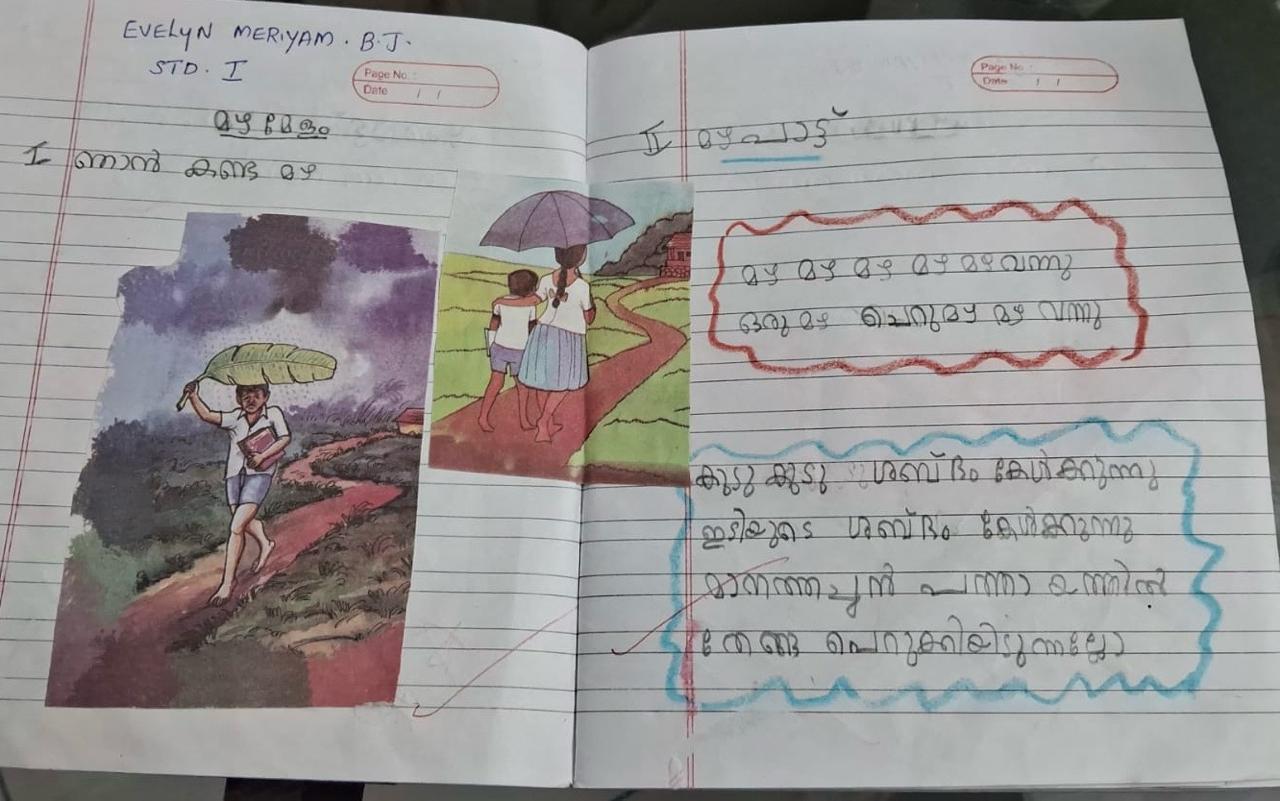 EVELYN MERIYAM. B.J.
STD. I
Page No. :
Date / /
മഴ മേളം
I ഞാൻ കണ്ട മഴ
Page No. :
Date / /
II മഴപാട്ട്
മഴ മഴ മഴ മഴ മഴവന്നു
ഒരു മഴ ചെറുമഴ മഴ വന്നു
കുടു കുടു ശബ്ദം കേൾക്കുന്നു
ഇടിയുടെ ശബ്ദം കേൾക്കുന്നു
മാനത്തച്ചൻ പത്തായത്തിൽ
തേങ്ങ പെറുക്കിയിടുന്നല്ലോ